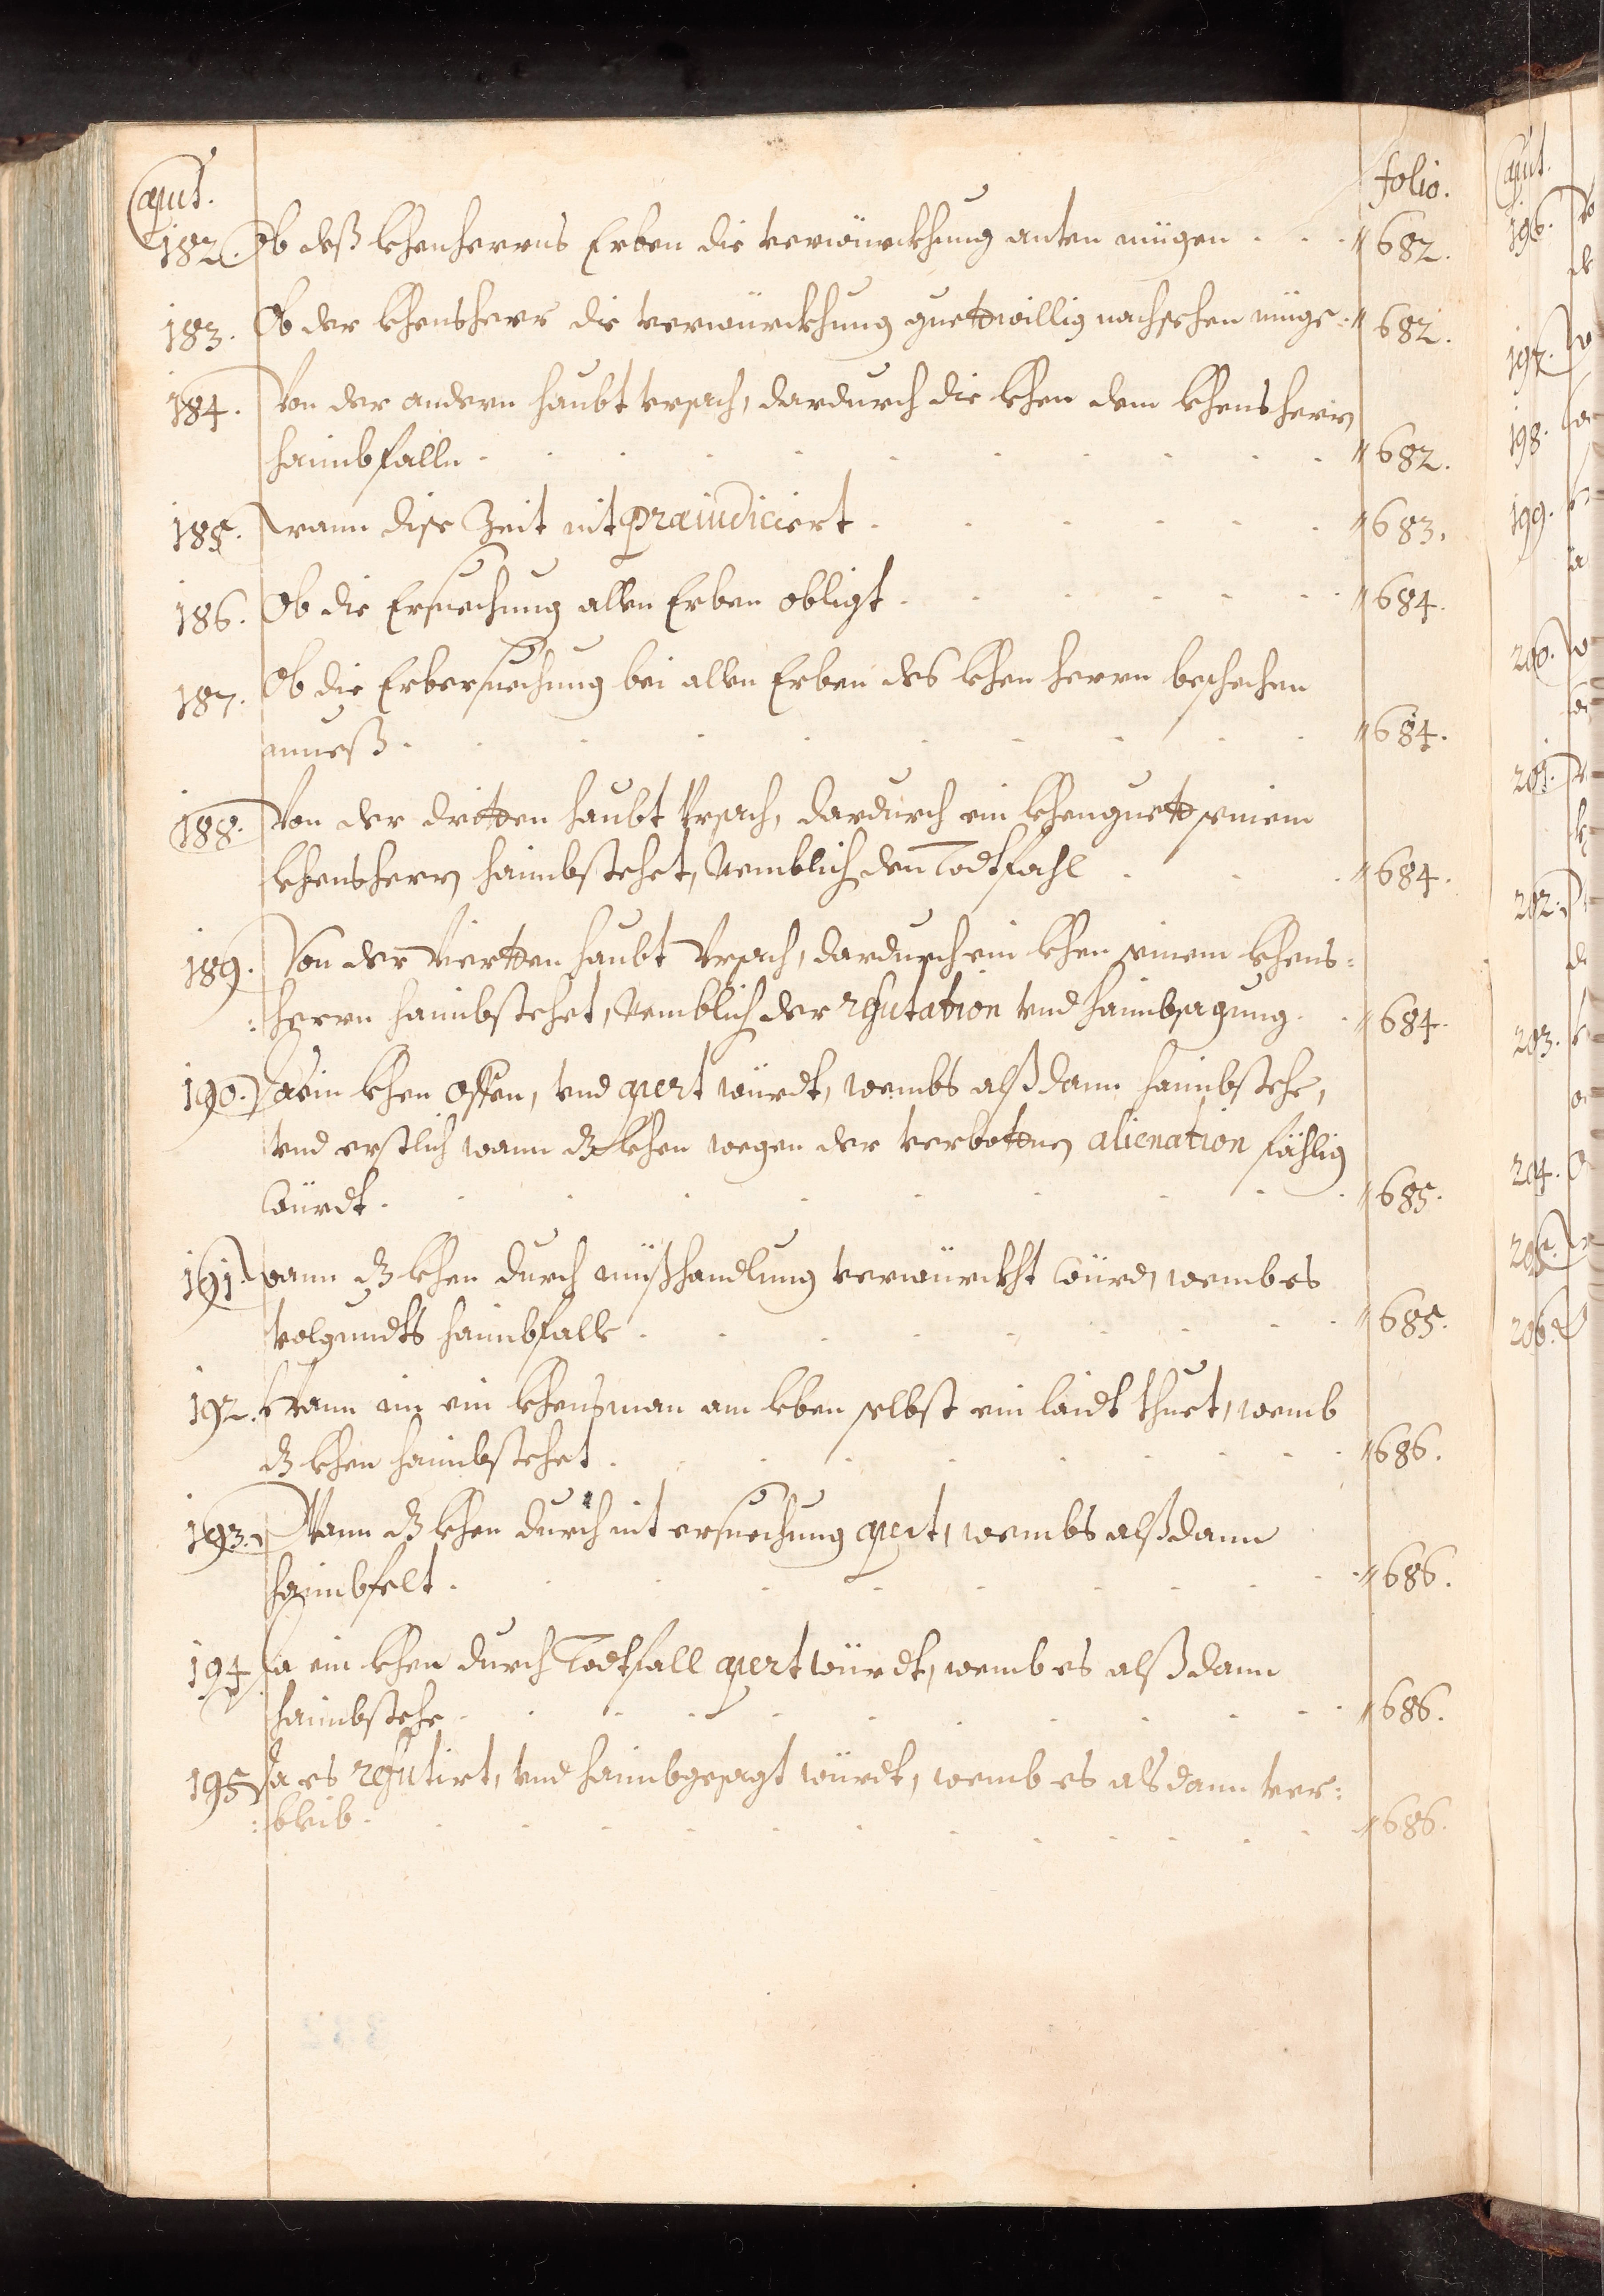 Caput. folio.
182. Ob deß lehenherrns Erben die verwürckhung anten mügen - - - 682.
183. Ob der lehensherr die verwürckhung guettwillig nachsehen müge 682.
184. Von der andern haubt vrsach, dardurch die lehen dem lehensherrn
haimbfalln - - - 682.
185. Wann dise Zeit nit præiudiciert - - - 683.
186. Ob die Ersuechung allen Erben obligt - - - 684.
187. Ob die Erbersuechung bei allen Erben des lehen herrn beschehen
mueß - - - 684.
188. Von der dritten haubt Vrsach, dardurch ein lehenguett seinem
lehensherrn haimbstehet, Nemblich den Todtfahl - - - 684.
189. Von der Viertten haubt Vrsach, dardurch ein lehen seinem lehens:
:herrn haimbstehet, Nemblich der refutation vnd haimbsagung - - 684.
190. Da ein lehen offen, vnd apert würdt, wembs alßdann haimbstehe,
vnd erstlich wann dz lehen wegen der verbottnen alienation fählig
würdt - - - 685.
191. Wann dz lehen durch mißhandlung verwürckht würd, wemb es
volgundts haimbfalle - - - 685.
192. Wann ein lehensman am leben selbst ein laidt thuet, wemb
dz lehen haimbstehet - - - 686.
193. Wann dz lehen durch nit ersuechung apert, wembs alßdann
haimbfelt - - - 686.
194. Da ein lehen durch Todtfall apert würdt, wemb es alßdann
haimbstehe - - - 686.
195. Da es refutirt, vnd haimbgesagt würdt, wemb es alsdann ver:
:bleib - - - 686.
Caput.
196.
197.
198.
199.
200.
201.
202.
203.
204.
205.
206.